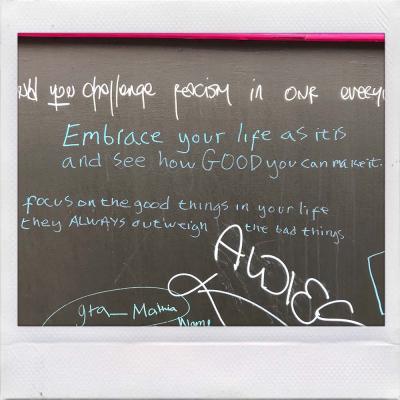 you challenge racism in our
Embrace your life as it is
and see how GOOD you can make it.
focus on the good things in your life
they ALWAYS outweigh the bad things